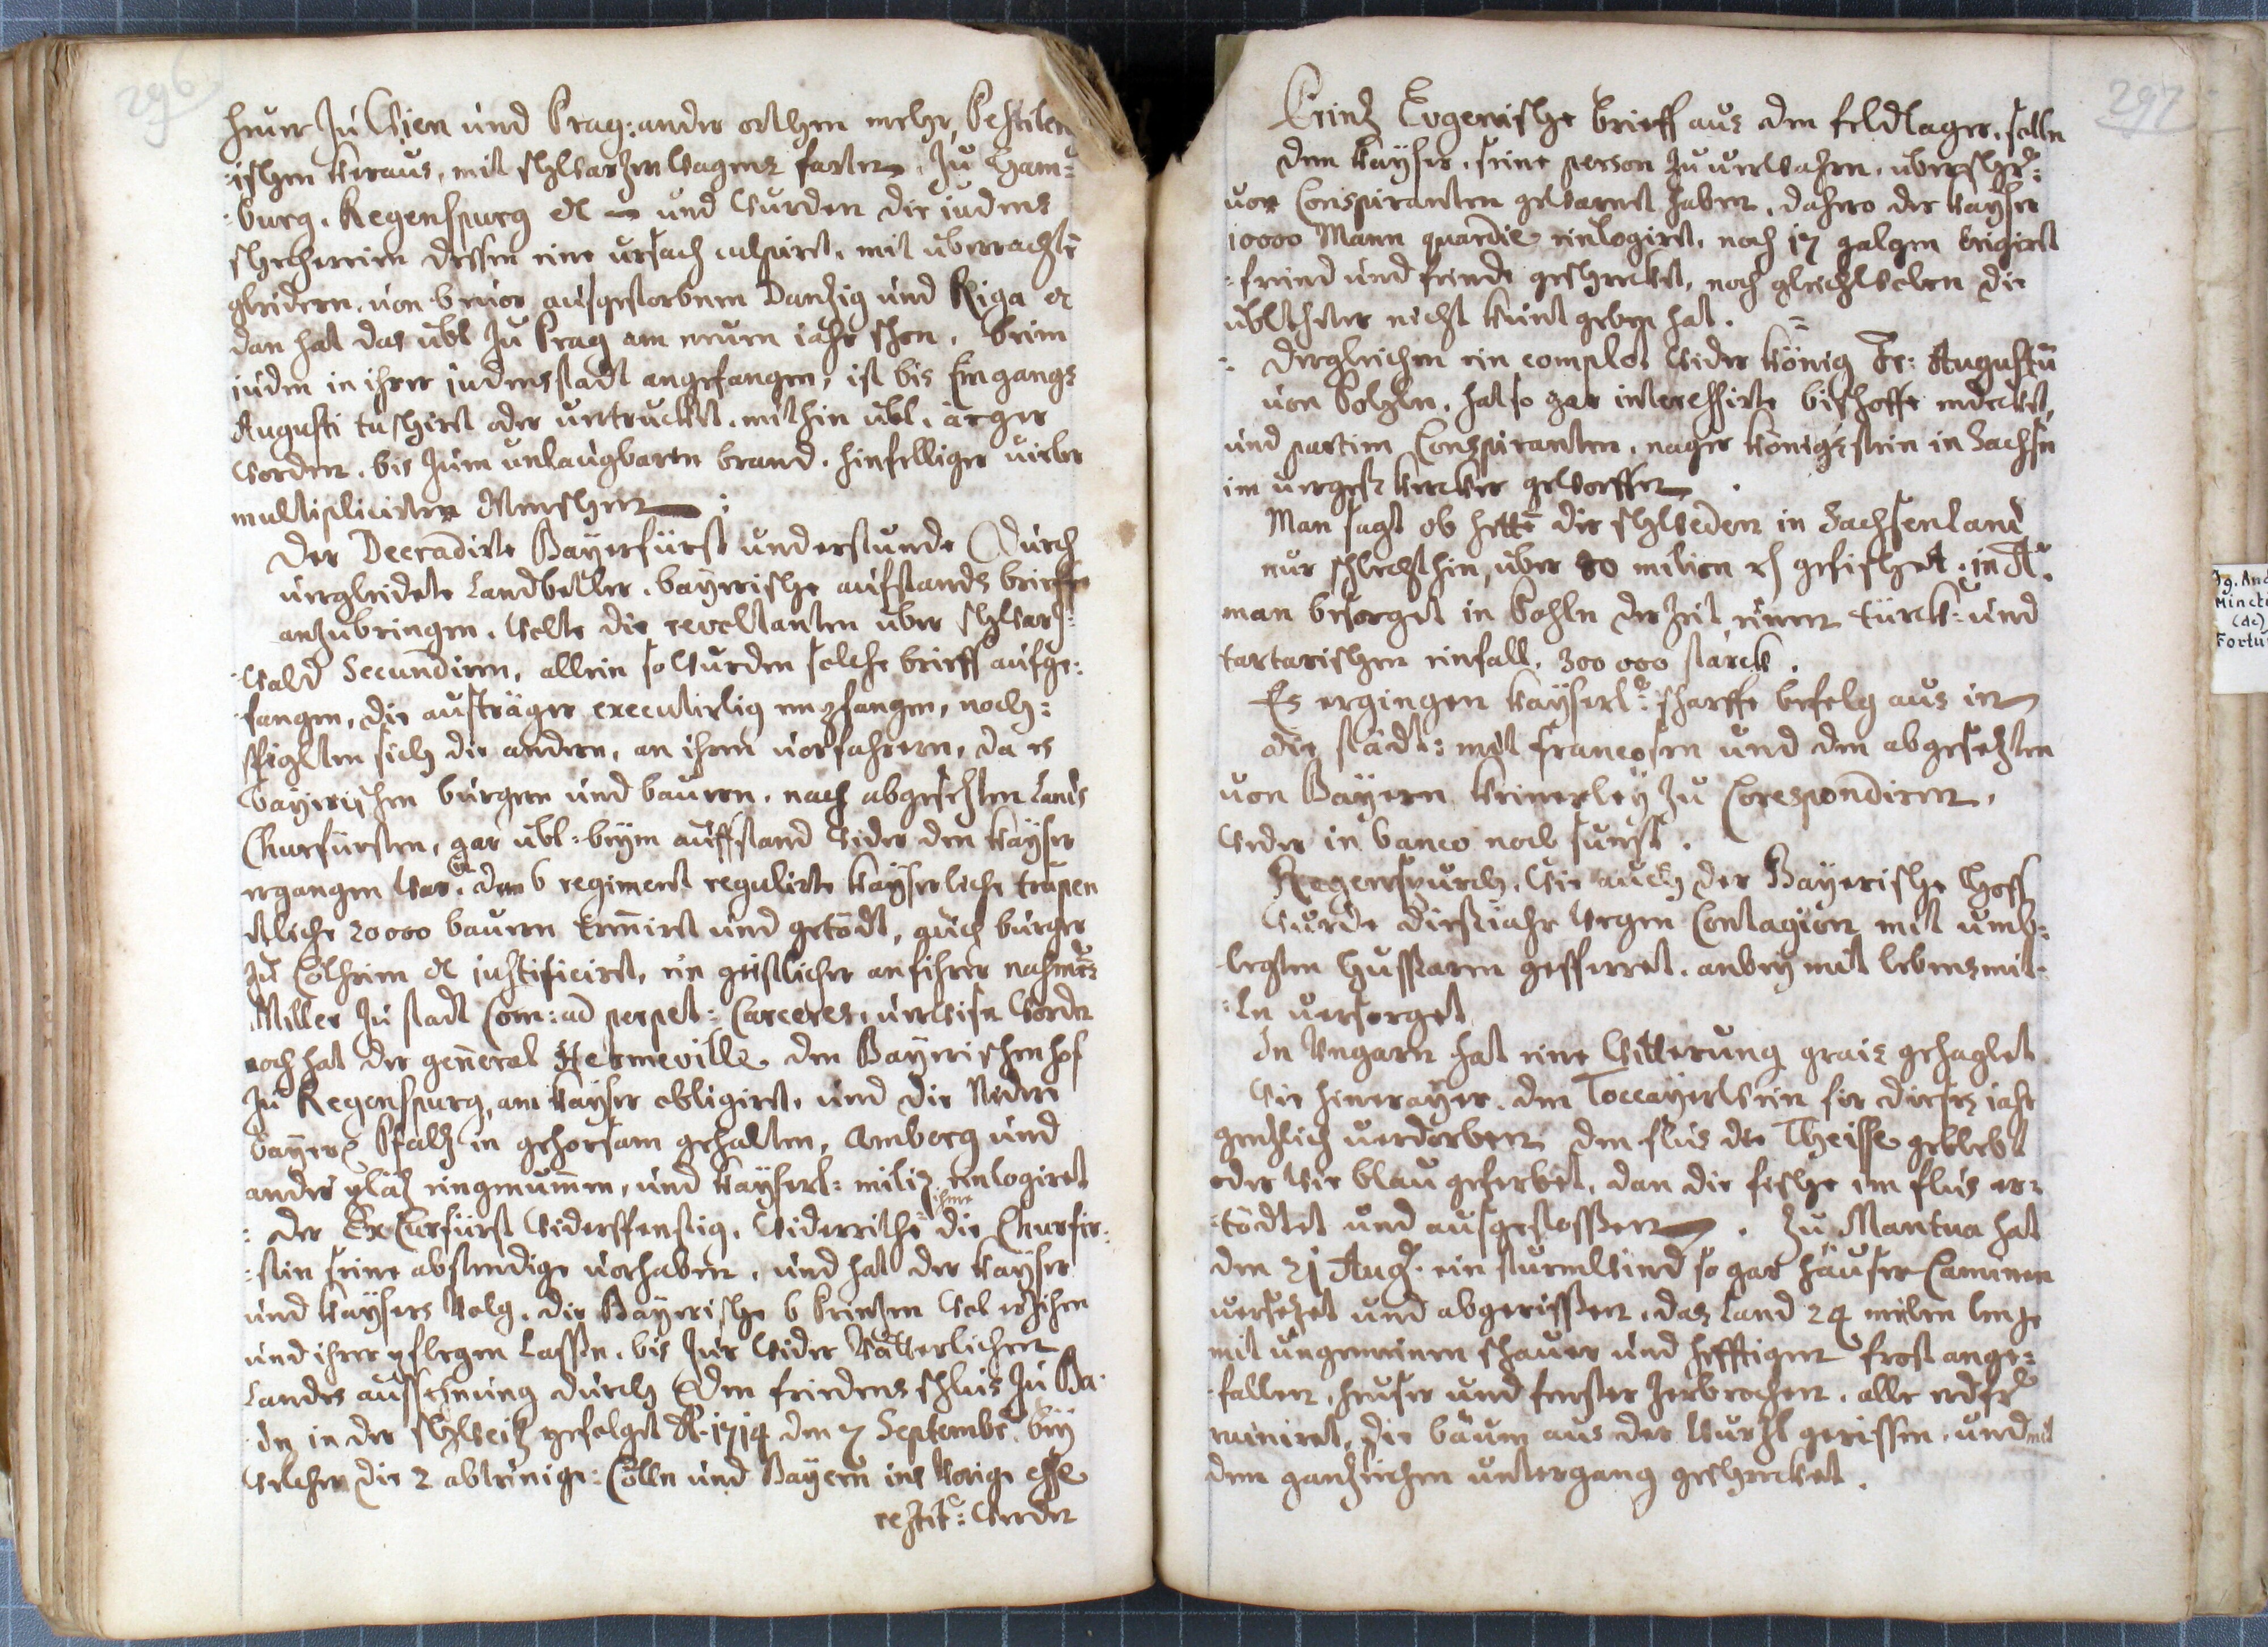 296
heuer zu Wien und Prag: ander orthen mehr, Pestilen
:ischen heraus, mit schwarzen wagens farten. Zu Ham:
:burg, Regenspurg et und wurden die judens
schecherein dessen eine ursach culpirt, mit
gleidern, von bevor ausgestorbenen Danzig und Riga et
dan hat das übl zu Prag am neuen iahr schon, beim
juden in ihrer judenstadt angefangen, ist bis Eingangs
Augusti tuschirt oder vertruckt, mithin übl, ärger
worden, bis zum unlaugbaren brand, hinfelliger vieler
multiplicirten Menschen :
Der Decradirte Bayerfürst understunde durch
vergleidete Landbetler, bayerische aufstands brieffe
anzubringen, wolte die revoltanten über schwarz:
:wald Secundiren, allein so wurden solche brieff aufge:
:fangen, die austräger executirlig empfangen, noch:
spiglten sich die andern, an ihren vorfahrern, da es
bayerischen burgern und bauren, nach abgesetzten Lands
Churfürsten, gar übl: beym auffstand wider den Kayser
ergangen war. den 6 regiment regulirte Kayserliche trupen
etliche 20000 bauern und getödt, auch burger
zu Cölheim et justificirt, ein geistlicher anführer nahmens
Miller zu stadt Com: ad perpet: Carceres, verwisen worden
noch hat der general Hermeville den Bayerischen hof
zu Regenspurg, am Kayser obligirt, und die Nidere
bayer Pfalz in gehorsam gehalten, Amberg und
ander pläz eingenummen, und Kayserl: miliz einlogiret
: der Ex Curfürst widerspenstig, widerriethe ihme die Churfir:
:stin seine abstendige vorhaben, und hat der Kayser
und Kaysers Volg, die Bayerische 6 Prinzen wol erzihen
und ihrer pflegen Lassen, bis zur wider Vätterlichen
Landes aussehnung durch den friedens schlus zu Ba:
:dn in der schweiz erfolget A. 1714 den 7 Septembr. bey
welchem die 2 abtrinige: Cölln und Bayern ins vorige esse
restit: werden
297
Prinz Eugenische brieff aus dem feldlager, sollen
dem Kayser, seine person zu verwahren, überschr:
von Conspiranten gewarnt haben, dahero der Kayser
10000 Mann quardie einlogirt, noch 17 galgen erigirt
:freind und feinde geschrekt, noch gleichwolen die
übltheter nicht kunt geben hat.
: dergleichen ein complot wider König Fr: Augustu
von Pohln, hat so gar interessirte bischoffe endeckt,
und partim Conspiranten, nacher Königstein in Sachsn
im vergess kercker geworffen.
Man sagt ob hette die schweden in Sachsenland
nur schlechthin, über 80 milion gefischet.
man besorget in Pohln der zeit, einen türck: und
tartarischen einfall, 300 000 starck.
Es ergingen Kayserl: scharffe befelg aus in
die städt: mit francosen und den abgesetzten
von Bayern keinerley zu Corespondiren,
weder in banco noch sunst.
Regenspurch, wie auch der Bayerische Hoff
wurde dieses iahr wegen Contagion mit umb:
:legten Hussaren gesperret, anbey mit lebensmit:
:ln versorget
In Ungarn hat eine Witterung grais gehaglet
wie hinerayer, den Toccayerwein für dieses iahr
genzlich verdorben, den flus der Theisse
oder wie blau geferbet, dan die fische im flus er:
:tödtet und ausgestossen. Zu Mantua hat
den 21 Aug. ein sturmwind so gar häuser Caminen
versezet und abgerissen, das Land 24 meilen lenge
mit ungemeinen schauer und hefftigen frost ange:
:fallen, heuser und fenster zerbrochen, alle
ruiniret, die bäum aus der wurzl gerissen, und mit
dem ganzlichen untergang geschrecket.
Jg. And
Mincti
(de)
Fortu